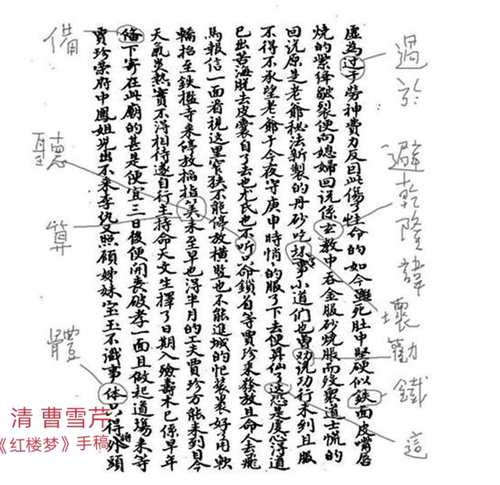 過於
避乾隆諱
壞
勸
鐵
這
虛為过于劳神費力反因此傷了性命的如今雖死肚中堅硬似鉄面皮嘴唇
燒的紫绛皺裂便向媳婦回说係玄教中吞金服砂燒脹而殁衆道士慌的
回说原是老爺秘法新製的丹砂吃坏事小道们也曾劝说功行未到且服
不得不承望老爺于今夜守庚申時悄的服了下去便昇仙了这恐是虔心得道
已出苦海脱去皮囊自了去也尤氏也不听命鎖着等賈珍来發放且命人去飛
馬報信一面看視这里窄狹不能停放横豎也不能進城的忙装裹好了用軟
轎抬至鉄檻寺来停放掐指算来至早也得半月的工夫賈珍方能来到目今
天氣炎熱實不得相待遂自行主持命天文生擇了日期入殮壽木已係早年
偹下寄在此廟的甚是便宜三日後便開喪破孝一面且做起道場来等
賈珍荣府中鳳姐兒出不来李纨又照顧姊妹宝玉不識事体只得将外頭
備
聽
算
體
清 曹雪芹
《红楼梦》手稿